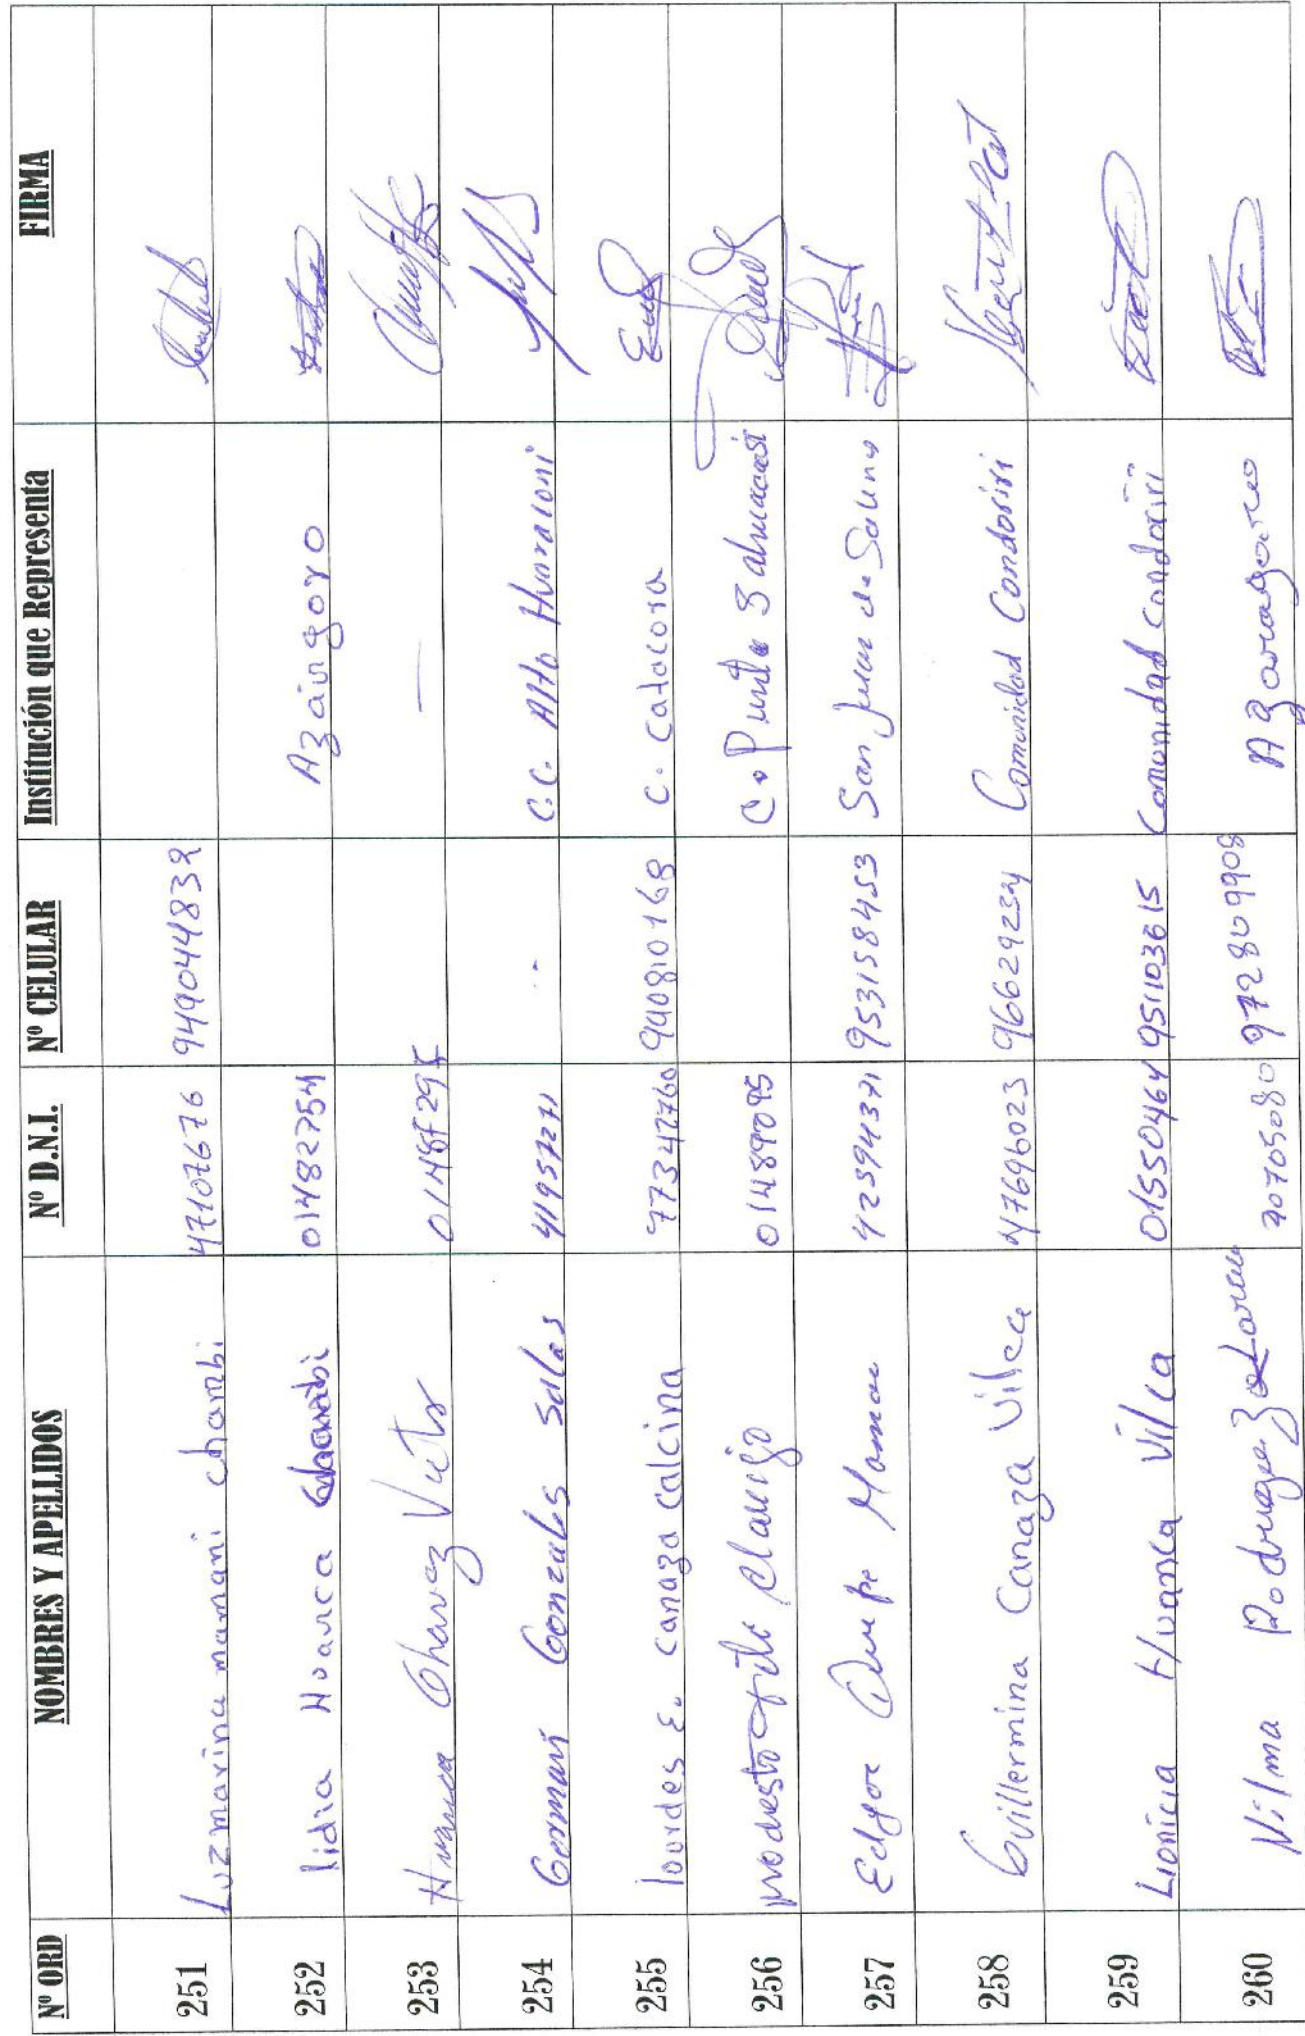 Nº ORD NOMBRES Y APELLIDOS Nº D.N.I. Nº CELULAR Institución que Representa FIRMA
251 Luzmarina mamani chambi 47107676 949044839
252 lidia Huanca chambi 01482754 Azángoro
253 Huanca Chavez Victor —
254 German Gonzales Salas 41957271 C.C. Alto Huraconi
255 lourdes E. Canaza Calcina 77342760 940810168 C. Catacora
256 modesto 01489095 C. Punta
257 Edgar Quispe Mamani 42394371 953158453 San Juan de Salinas
258 Guillermina Canaza Vilca 47696023 96629234 Comunidad Condoriri
259 Lionicia Huanca Vilca 01550464 951103615 Comunidad Condoriri
260 Vilma Rodriguez 972809908